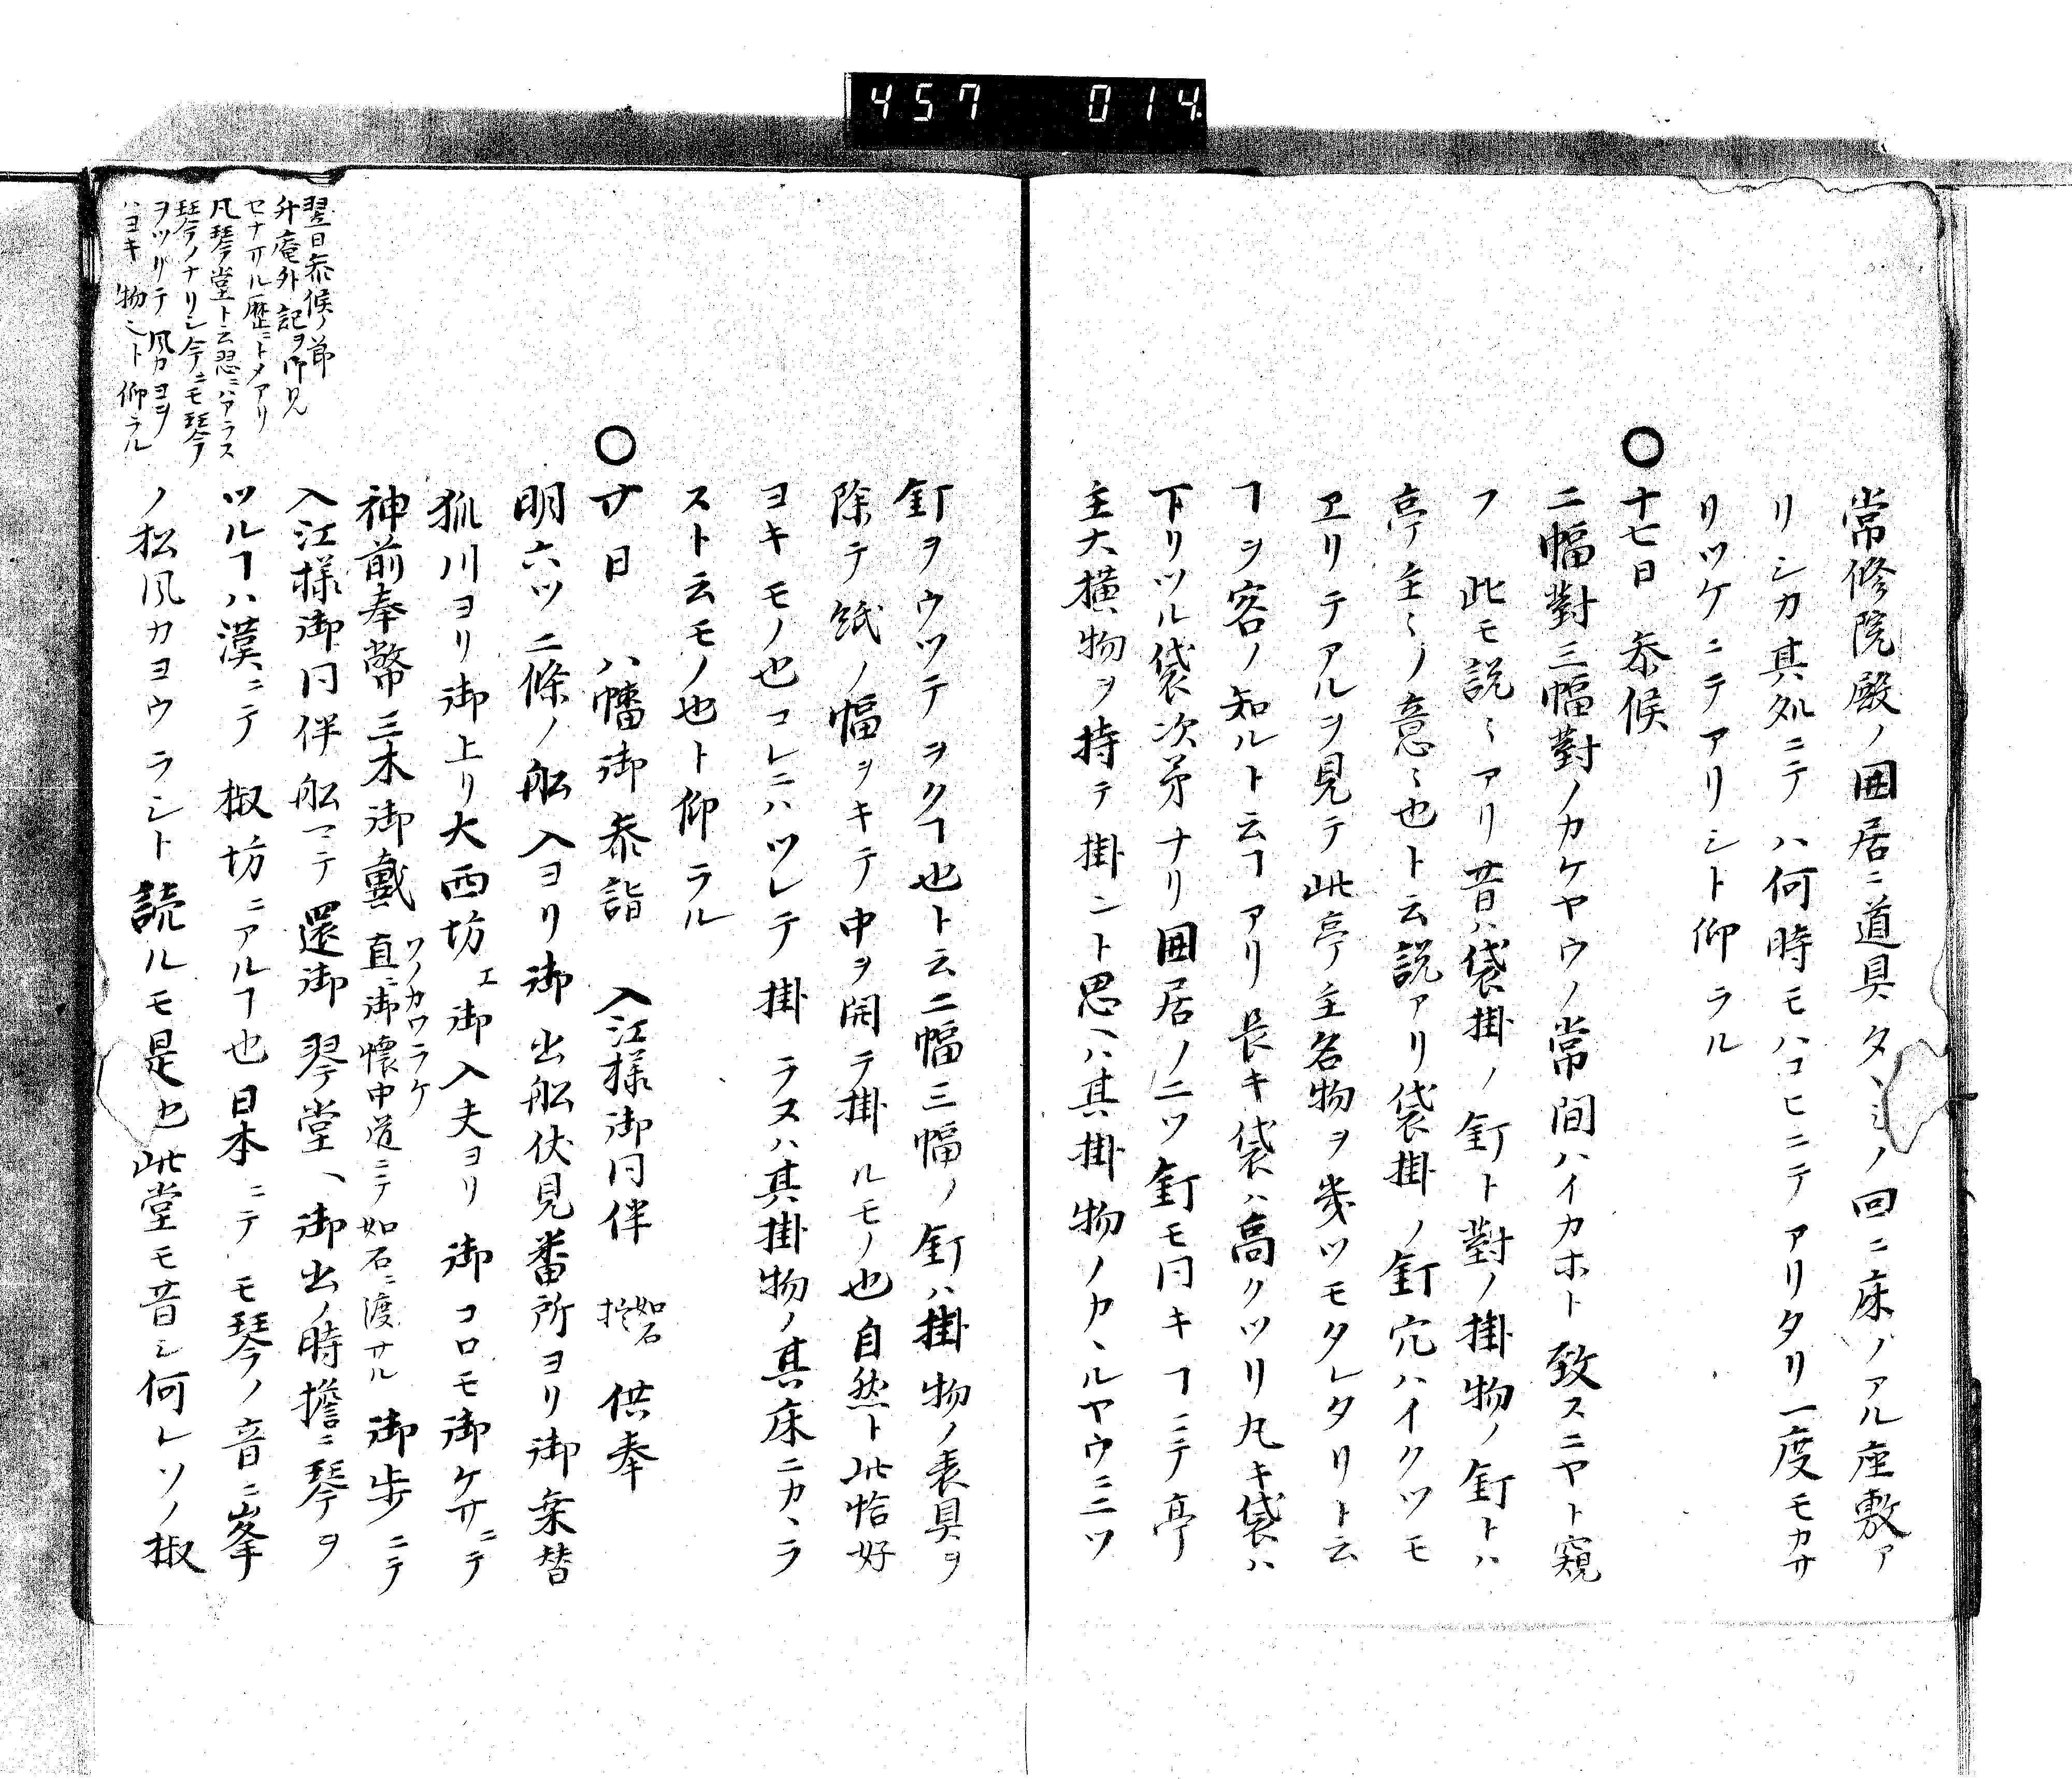 457 014
常修院殿ノ囲居ニ道具タヽミノ回ニ床ノアル座敷ア
リシカ其処ニテハ何時モハコヒニテアリタリ一度モカサ
リツケニテアリシト仰ラル
〇十七日 参候
二幅對三幅對ノカケヤウノ常間ハイカホト致スニヤト窺
フ 此モ説ミアリ昔ハ袋掛ノ釘ト對ノ掛物ノ釘トハ
亭主〻ノ意〻也ト云説アリ袋掛ノ釘穴ハイクツモ
ヱリテアルヲ見テ此亭主名物ヲ幾ツモタレタリト云
ヿヲ客ノ知ルト云ヿアリ長キ袋ハ高クツリ丸キ袋ハ
下リツル袋次第ナリ囲居ノ二ツ釘モ同キヿニテ亭
主大横物ヲ持テ掛ント思ヘハ其掛物ノカヽルヤウニ二ツ
釘ヲウツテヲクヿ也ト云二幅三幅ノ釘ハ掛物ノ表具ヲ
除テ紙ノ幅ヲキテ中ヲ開テ掛ルモノ也自然ト此恰好
ヨキモノ也コレニハツレテ掛ラヌハ其掛物ノ其床ニカヽラ
ヌト云モノ也ト仰ラル
〇廿日 八幡御参詣 入江様御同伴 如石 供奉
明六ツ二條ノ舩入ヨリ御出舩伏見番所ヨリ御乗替
狐川ヨリ御上リ大西坊エ御入夫ヨリ御コロモ御ケサニテ
神前奉幣三木御戴ソノカワラケ直ニ御懐中道ニテ如石ニ渡サル御歩ニテ
入江様御同伴舩マテ還御 琴堂ヘ御出ノ時擔ニ琴ヲ
ツルヿハ漢ニテ椒坊ニアルヿ也日本ニテモ琴ノ音ニ峯
ノ松風カヨウラシト読ルモ是也此堂モ昔シ何レソノ椒
翌日参候ノ節
舛庵外記ヲ御見
セナサル歴ニトメアリ
凡琴堂ト云忍ニハアラス
琴ノナリシ今ニモ琴
ヲツリテ風カヨヲ
ハヨキ物シト仰ラル